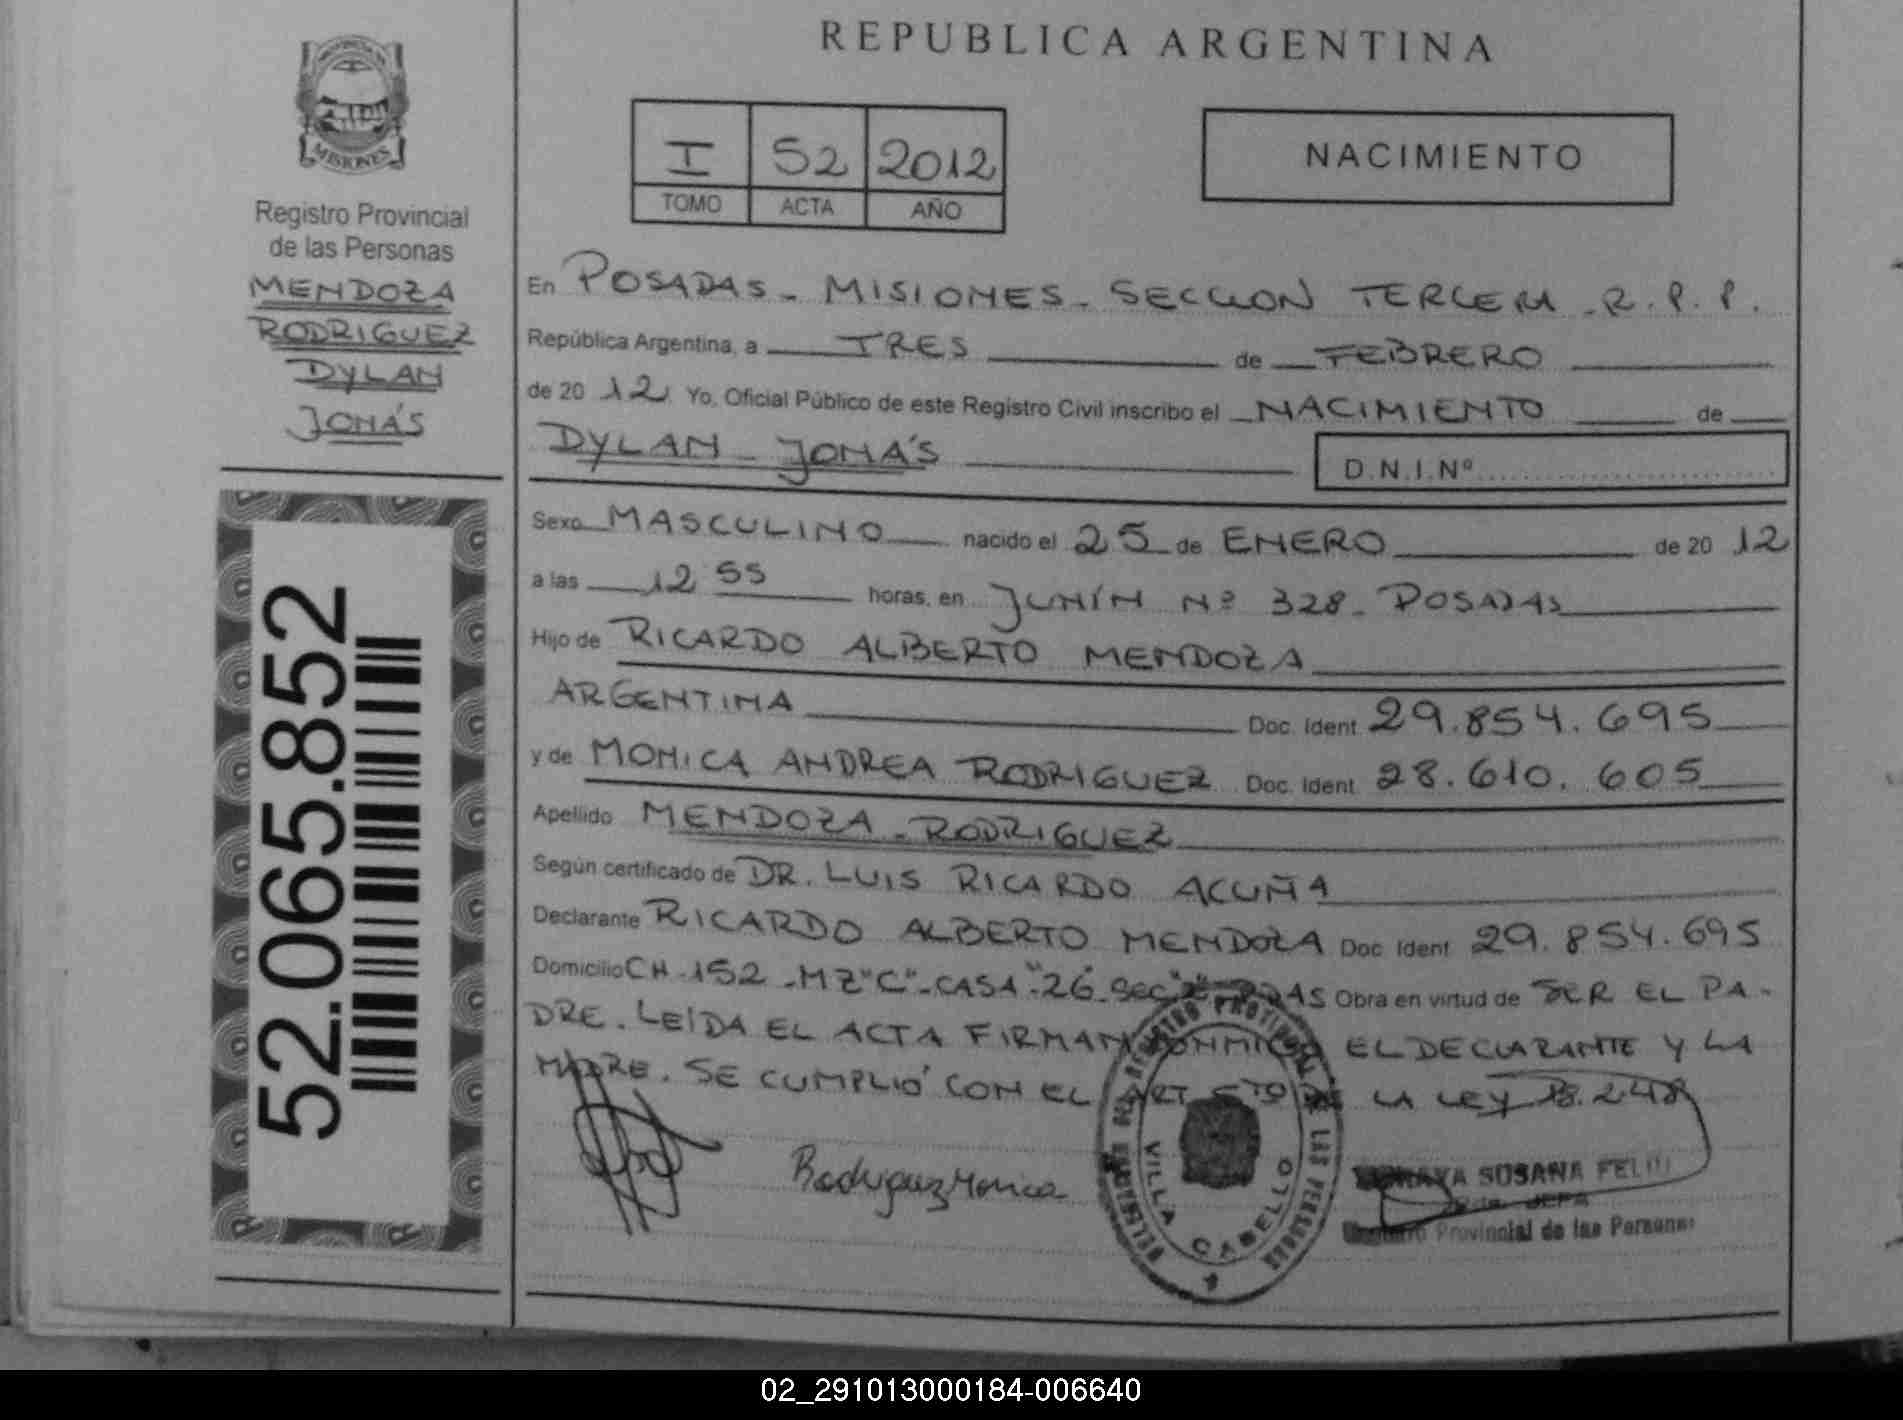 REPUBLICA ARGENTINA
PROVINCIA DE
MISIONES
Registro Provincial
de las Personas
MENDOZA
RODRIGUEZ
DYLAN
JONÁS
52.065.852
I 52 2012
TOMO ACTA AÑO
NACIMIENTO
En POSADAS - MISIONES - SECCION TERCERA - R.P.P.
República Argentina, a TRES de FEBRERO
de 20 12 Yo, Oficial Público de este Registro Civil inscribo el NACIMIENTO de
DYLAN - JONÁS D.N.I.Nº
Sexo MASCULINO nacido el 25 de ENERO de 20 12
a las 12 55 horas, en JUNÍN Nº 328 - POSADAS
Hijo de RICARDO ALBERTO MENDOZA
ARGENTINA Doc. Ident. 29.854.695
y de MONICA ANDREA RODRIGUEZ Doc. Ident. 28.610.605
Apellido MENDOZA - RODRIGUEZ
Según certificado de DR. LUIS RICARDO ACUÑA
Declarante RICARDO ALBERTO MENDOZA Doc. Ident. 29.854.695
Domicilio CH - 152 - MZ "C" - CASA "26 - SEC Obra en virtud de SER EL PA-
DRE. LEÍDA EL ACTA FIRMAN CONMIGO EL DECLARANTE Y LA
MADRE. SE CUMPLIÓ CON EL ART 5TO DE LA LEY 18.248
Rodriguez Monica
REGISTRO PROVINCIAL DE LAS PERSONAS
VILLA CABELLO
SUSANA
JEFA
Provincial de las Personas
02_291013000184-006640